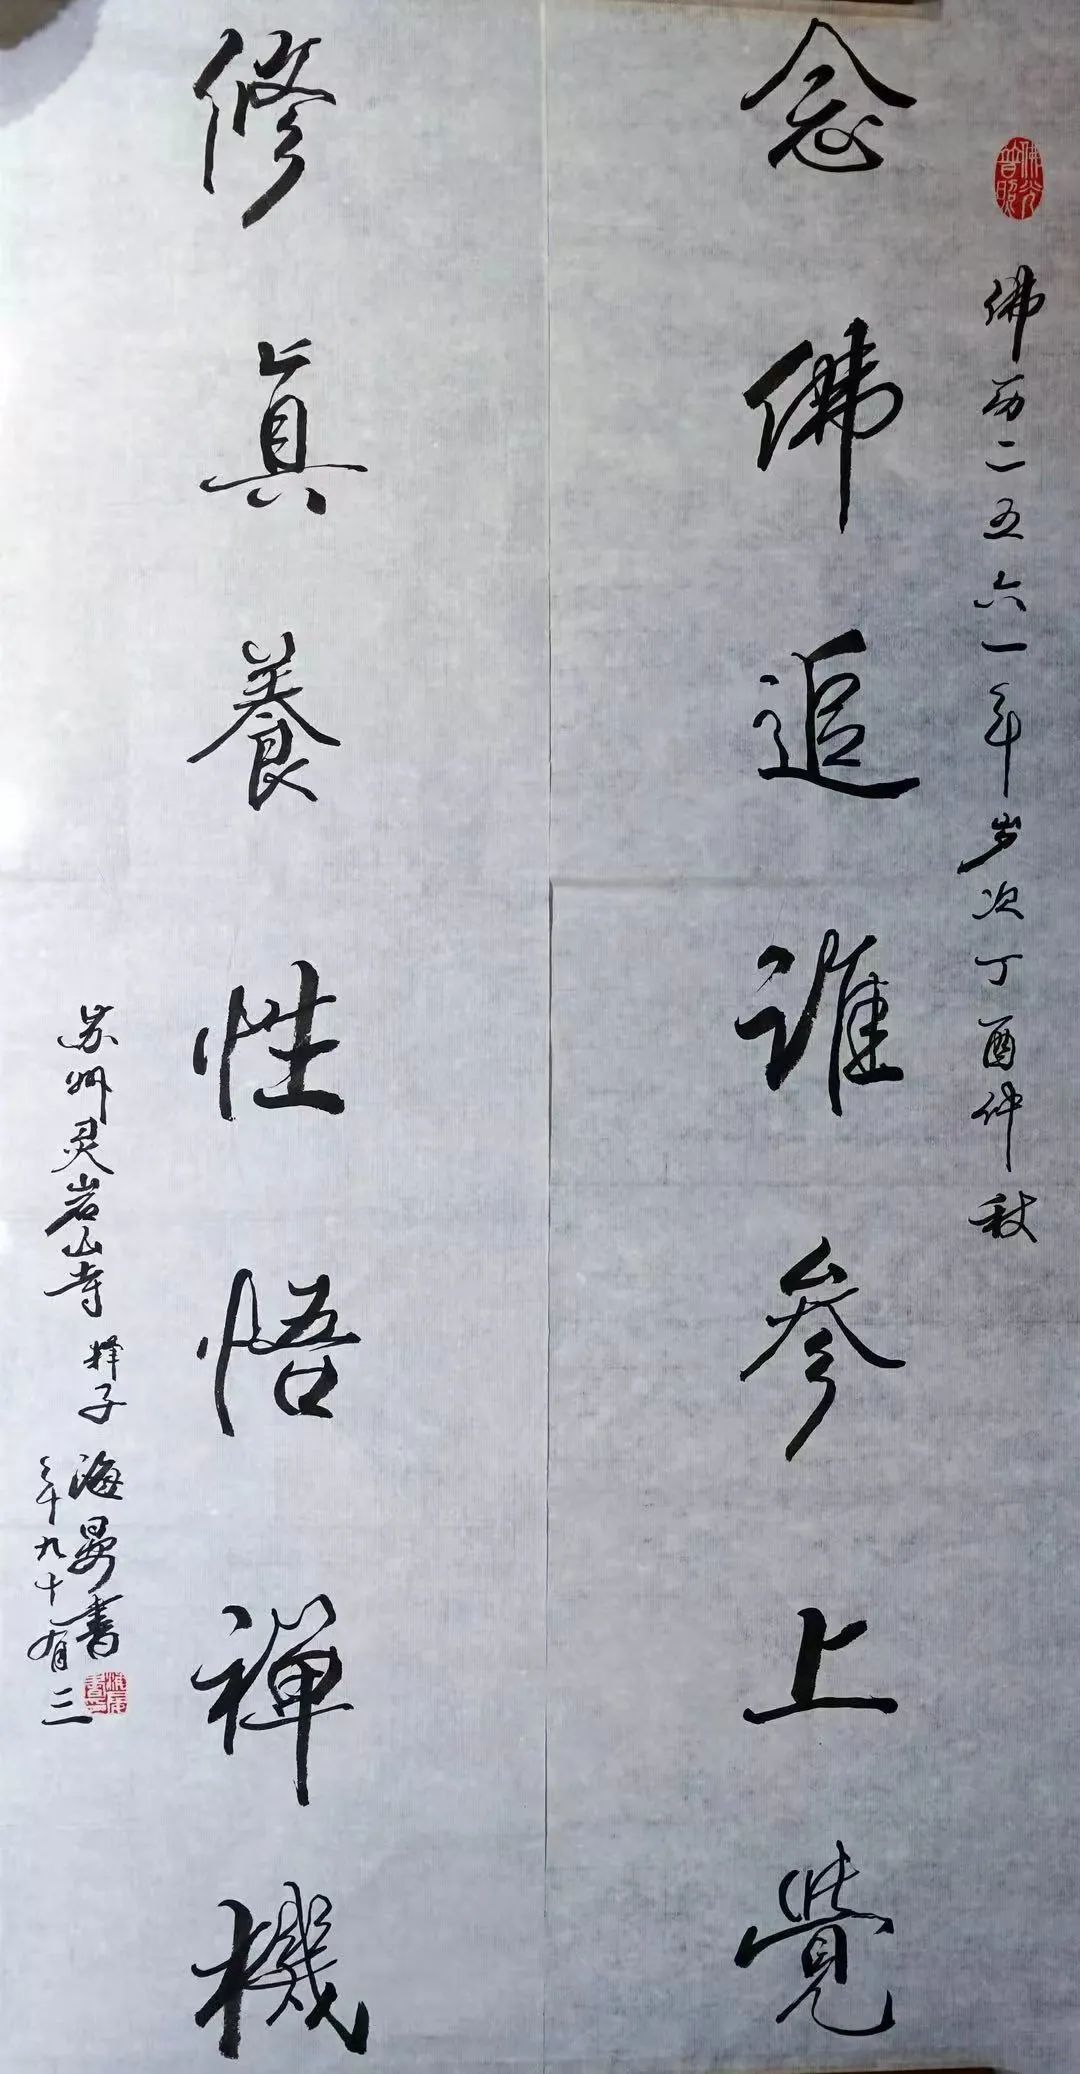 佛光普照
佛历二五六一年岁次丁酉仲秋
念佛追谁参上覺
修真養性悟禪機
苏州灵岩山寺釋子海晏書
年九十有三